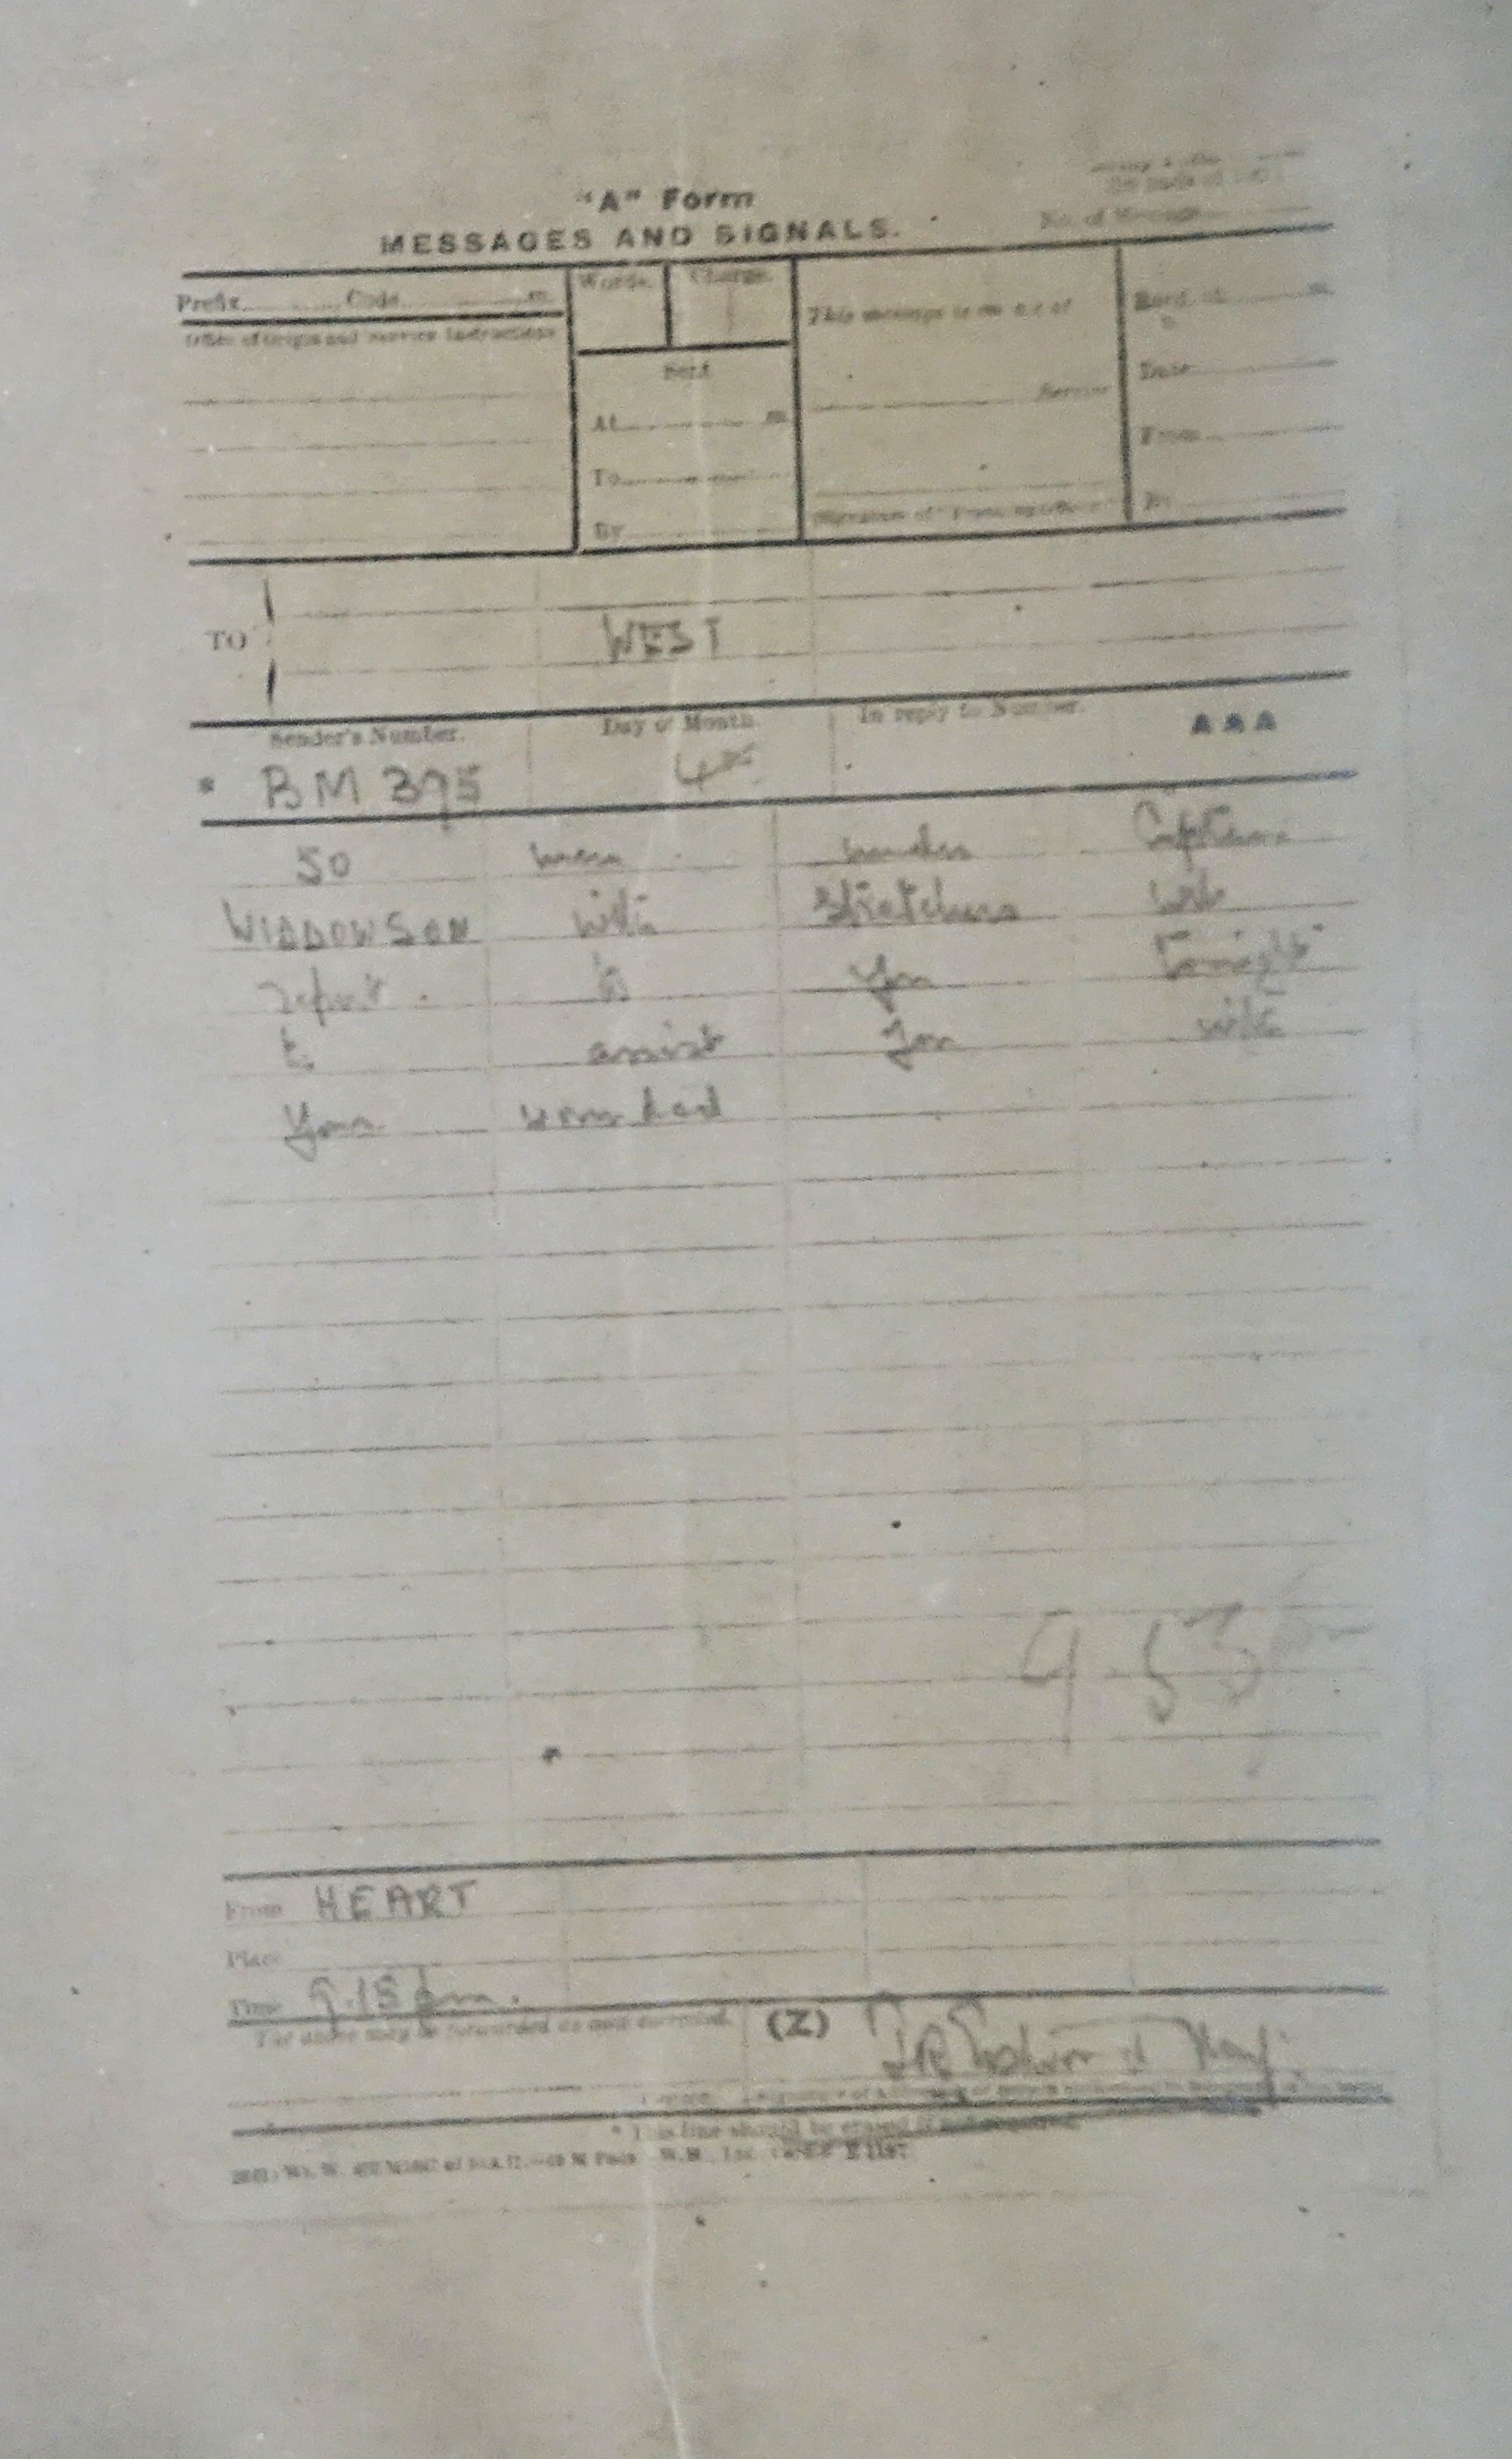 "A" Form
MESSAGES AND SIGNALS.
No. of Message
Prefix Code m. Words. Charge.
This message is on a/c of
Recd. at m.
Office of Origin and Service Instructions
Sent
Date
At m.
Service
From
To
By
By
TO WEST
Sender's Number. Day of Month. In reply to Number. AAA
* BM 395 4th
50 men under Captain
WIDDOWSON with stretchers will
report to you tonight
to assist you with
your wounded
9.55 pm
From HEART
Place
Time 9.15 pm.
The above may be forwarded as now corrected. (Z)
Maj.
* This line should be erased if not required.